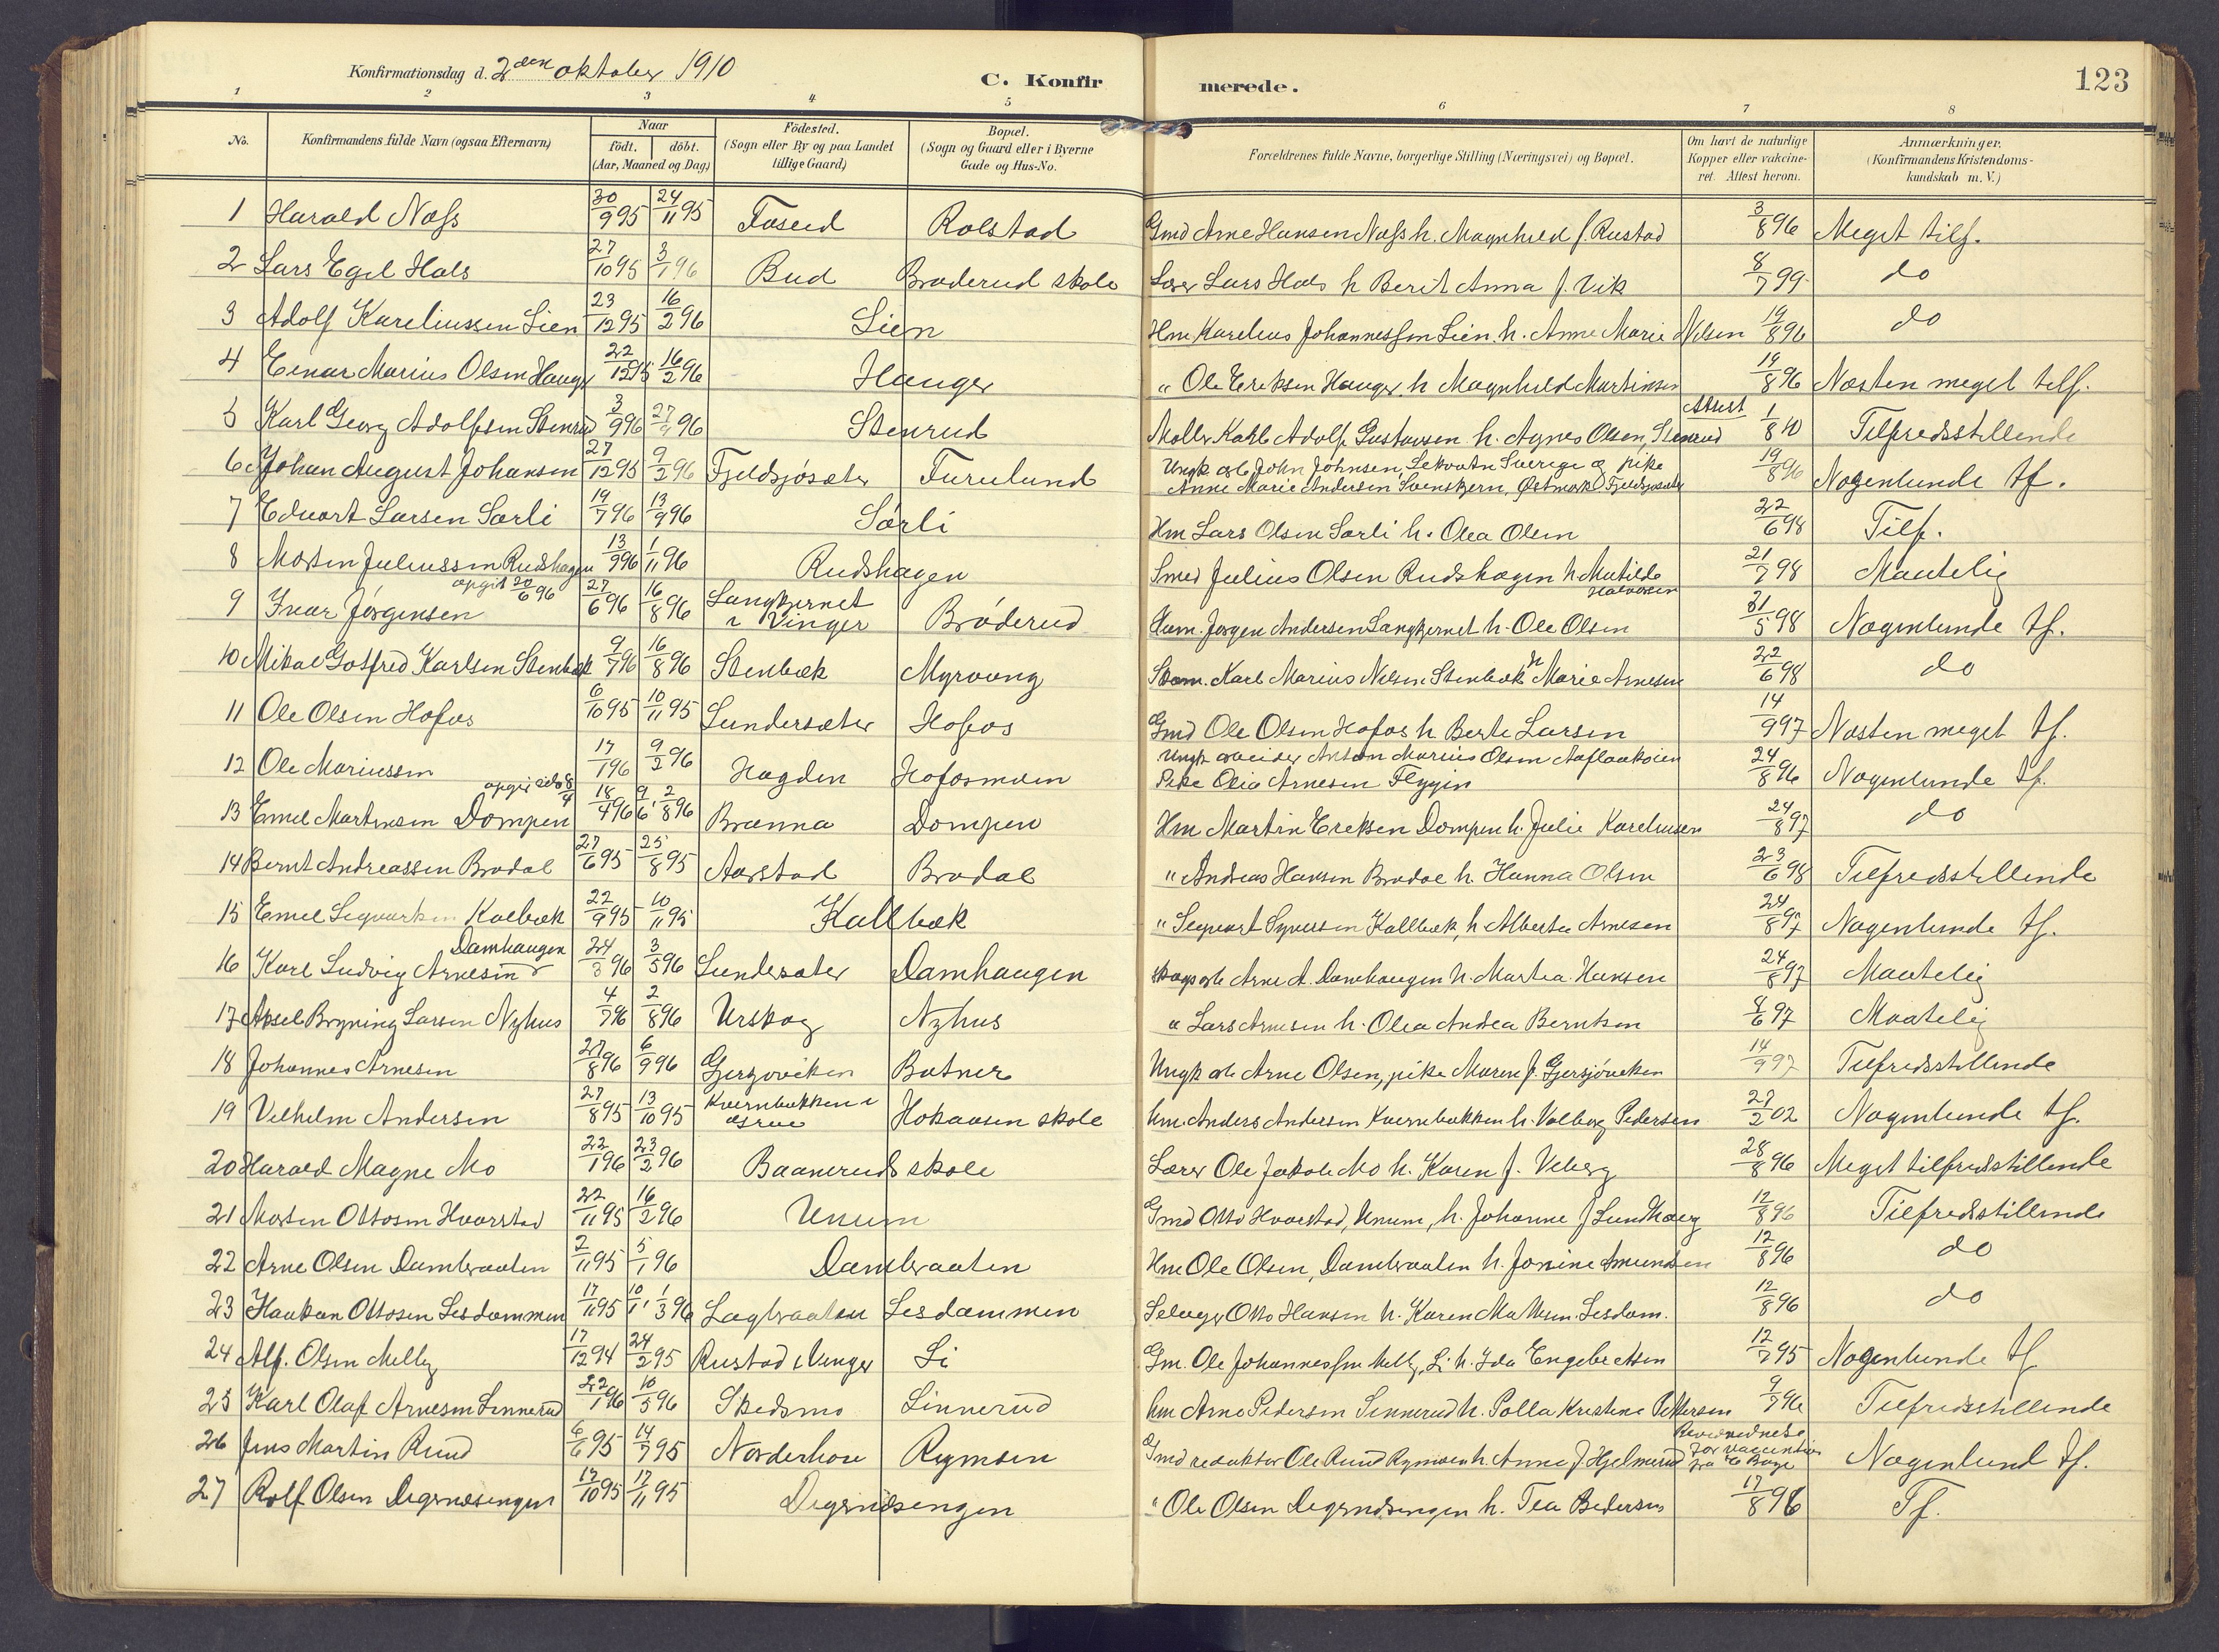 Konfirmationsdag d. 2den oktober 1910 C. Konfirmerede. 123
1 2 3 4 5 6 7 8
No. Konfirmandens fulde Navn (ogsaa Efternavn) Naar födt. döbt. (Aar, Maaned og Dag) Födested. (Sogn eller By og paa Landet tillige Gaard) Bopæl. (Sogn og Gaard eller i Byerne Gade og Hus-No. Forældrenes fulde Navne, borgerlige Stilling (Næringsvei) og Bopæl. Om havt de naturlige Kopper eller vakcineret. Attest herom. Anmærkninger. (Konfirmandens Kristendomskundskab m. V.)
1 Harald Næss 30/9 95 24/11 95 Rolstad Gmd Arne Hansen Næss h. Magnhild f. Rustad 3/8 96 Meget tilf.
2 Lars Egil Hals 27/10 95 3/1 96 Bud Braderud skole Lærer Lars Hals h Berit Anna f. Vik 8/7 99 do
3 Adolf Kareliussen Lien 23/12 95 16/2 96 Lien Hm Karelius Johannessen Lien h. Anne Marie Nilsen 19/8 96 do
4 Einar Marius Olsen Hauger 22/12 95 16/2 96 Hauger " Ole Eriksen Hauger h Magnhild Martinsen 19/8 96 Næsten meget tilf.
5 Karl Georg Adolfsen Stenrud 3/9 96 27/9 96 Stenrud Møller Karl Adolf Gustavsen h. Agnes Olsen, Stenrud Attest 1/8 10 Tilfredsstillende
6 Johan August Johansen 27/12 95 9/2 96 Fjeldsjösæter Furulund Ungk arb John Johnsen, Sverige og pike Anne Marie Andersen Svenskjern, Østmark Fjeldsjösæter 19/8 96 Nogenlunde tf.
7 Edvart Larsen Sørli 19/7 96 13/9 96 Sørli Hm Lars Olsen Sørli h. Olea Olsen 22/6 98 Tilf.
8 Morten Juliussen Rudshagen 13/9 96 1/11 96 Rudshagen Smed Julius Olsen Rudshagen h Matilde Halvorsen 21/7 98 Maatelig
9 Ivar Jörgensen opgit 20/6 96 27/6 96 16/8 96 Langkjernet i Vinger Bröderud Hum. Jørgen Andersen Langkjernet h. Ole Olsen 31/5 98 Nogenlunde tf.
10 Mikal Gotfred Karlsen Stenbæk 9/7 96 16/8 96 Stenbæk Myrvang Karl Marius Nilsen Stenbæk h Marie Arnesen 22/6 98 do
11 Ole Olsen Hofos 6/10 95 10/11 95 Sundersæter Hofos Gmd Ole Olsen Hofos h Berte Larsen 14/9 97 Næsten meget tf.
12 Ole Mariussen 17/1 96 9/2 96 Hagden Hofosmoen Ungk arbeider Anton Marius Olsen Pike Olia Arnesen Flyggin 24/8 96 Nogenlunde tf.
13 Emil Martinsen Dompen 18/4 96 9/6, 2/8 96 Brænna Dompen Hm Martin Eriksen Dompen h. Julie Kareliusen 24/8 97 do
14 Bernt Andreassen Brodal 27/6 95 25/8 95 Aarstad Brodal " Andreas Hansen Brodal h. Hanna Olsen 23/6 98 Tilfredsstillende
15 Emil Sigvartsen Kolbæk 22/9 95 10/11 95 Kallbæk " Sigvart Syversen Kallbæk, h Alberta Arnesen 24/8 97 Nogenlunde tf.
16 Karl Ludvig Arnesen Damhaugen 24/3 96 3/5 96 Sundersæter Damhaugen skogsarb Arne A. Damhaugen h. Martea Hansen 24/8 97 Maatelig
17 Aksel Bryning Larsen Nyhus 4/7 96 2/8 96 Urskog Nyhus " Lars Arnesen h. Olea Andea Berntsen 8/6 97 Maatelig
18 Johannes Arnesen 27/8 96 6/9 96 Gjersjöviken Botner Ungk arb Arne Olsen, pike Maren f. Gjersjöviken 14/9 97 Tilfredsstillende
19 Vilhelm Andersen 27/8 95 13/10 95 Kvernbækken i Hokaasen skole Hm. Anders Andersen Kvernbækken h. Valborg Pedersen 27/2 02 Nogenlunde tf.
20 Harald Magne Mo 22/1 96 23/2 96 Baaneruds skole Lærer Ole Jakob Mo h. Karen f. Viberg 28/8 96 Meget tilfredsstillende
21 Morten Ottosen Hvarstad 22/11 95 16/2 96 Unum Gmd Otto Hvarstad, Unum, h. Johanne f Lundhaug 12/8 96 Tilfredsstillende
22 Arne Olsen Dambraaten 2/11 95 5/1 96 Dambraaten Hm Ole Olsen, Dambraaten h. Jonine Amundsen 12/8 96 do
23 Haakon Ottosen Lesdammen 17/11 95 10/1, 1/3 96 Lagbraaten Lesdammen Selveger Otto Hansen h. Karen Mathisen Lesdam. 12/8 96 do
24 Alf. Olsen Melby 17/12 94 24/2 95 Rustad i Vinger Li Gm. Ole Johannessen Melby, Li h. Ida Engebretsen 12/7 95 Nogenlunde tf
25 Karl Olaf Arnesen Linnerud 22/1 96 10/5 96 Skedsmo Linnerud Hm Arne Pedersen Linnerud h. Polla Kristine Pettersen 9/7 96 Tilfredsstillende
26 Jens Martin Ruud 6/6 95 14/7 95 Norderhov Rymoen Gmd redaktör Ole Ruud Rymoen h. Anna f Hjelmerud Nogenlund tf.
27 Rolf Olsen Digernæsengen 12/10 95 17/11 95 Digernæsengen " Ole Olsen Digernæsengen h. Tea Pedersen 17/8 96 Tf.